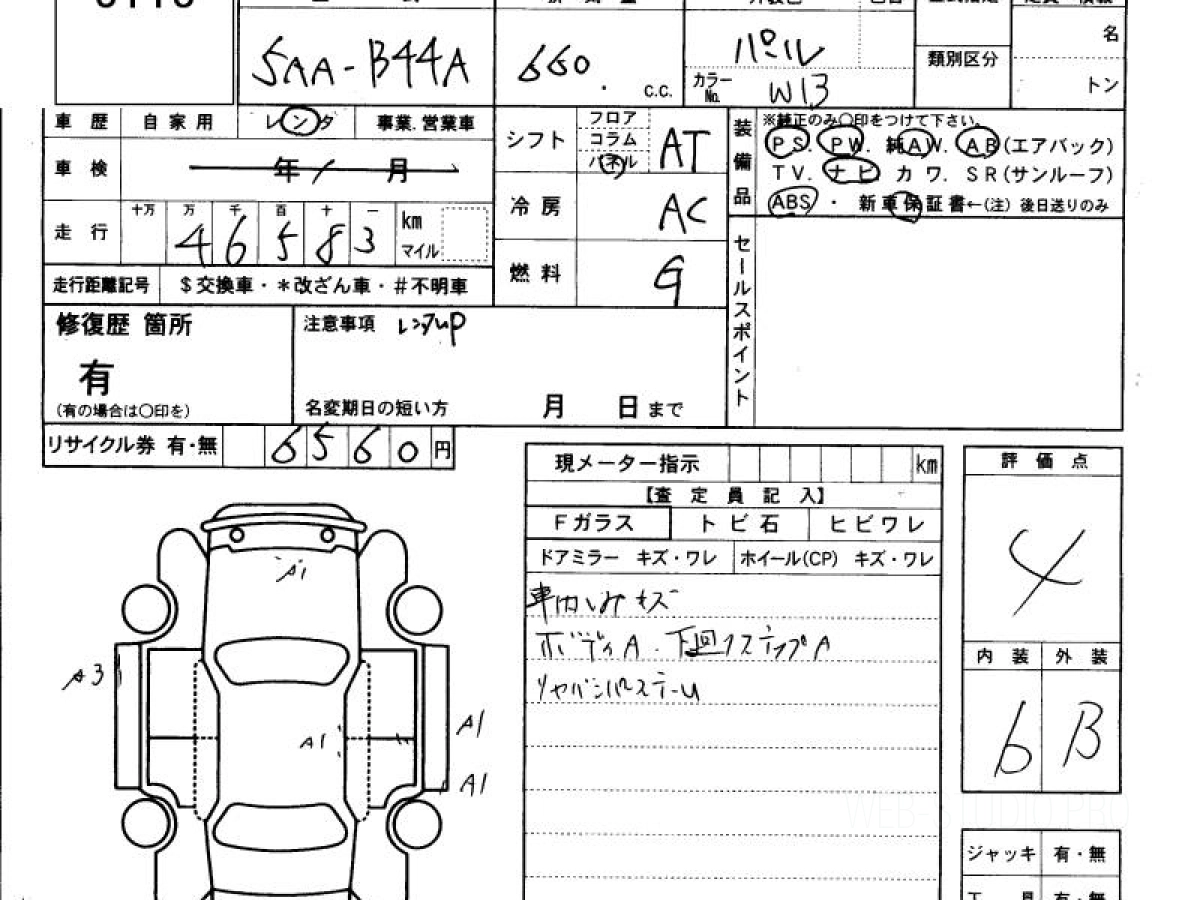 5AA-B44A
660
C.C.
パール
カラーNo. W13
類別区分
名
トン
車歴 自家用 レンタ 事業.営業車
車検 年 月
走行 十万 万 千 百 十 一
4 6 5 8 3 km マイル
走行距離記号 $交換車・*改ざん車・#不明車
シフト フロア コラム パネル AT
冷房 AC
燃料 G
装備品
※純正のみ〇印をつけて下さい。
PS. PW. 純AW. AB(エアバック)
TV. ナビ カワ. SR(サンルーフ)
ABS ・ 新車保証書←(注) 後日送りのみ
セールスポイント
修復歴 箇所
有
(有の場合は〇印を)
注意事項 レンタUP
名変期日の短い方 月 日まで
リサイクル券 有・無 6 5 6 0 円
現メーター指示 km
【査定員記入】
Fガラス トビ石 ヒビワレ
ドアミラー キズ・ワレ ホイール(CP) キズ・ワレ
車内しみキズ
ボディA.下回り ステップA
評価点
4
内装 外装
b B
A1
A3
A1
A1
A1
ジャッキ 有・無
WEB-STUDIO.PRO